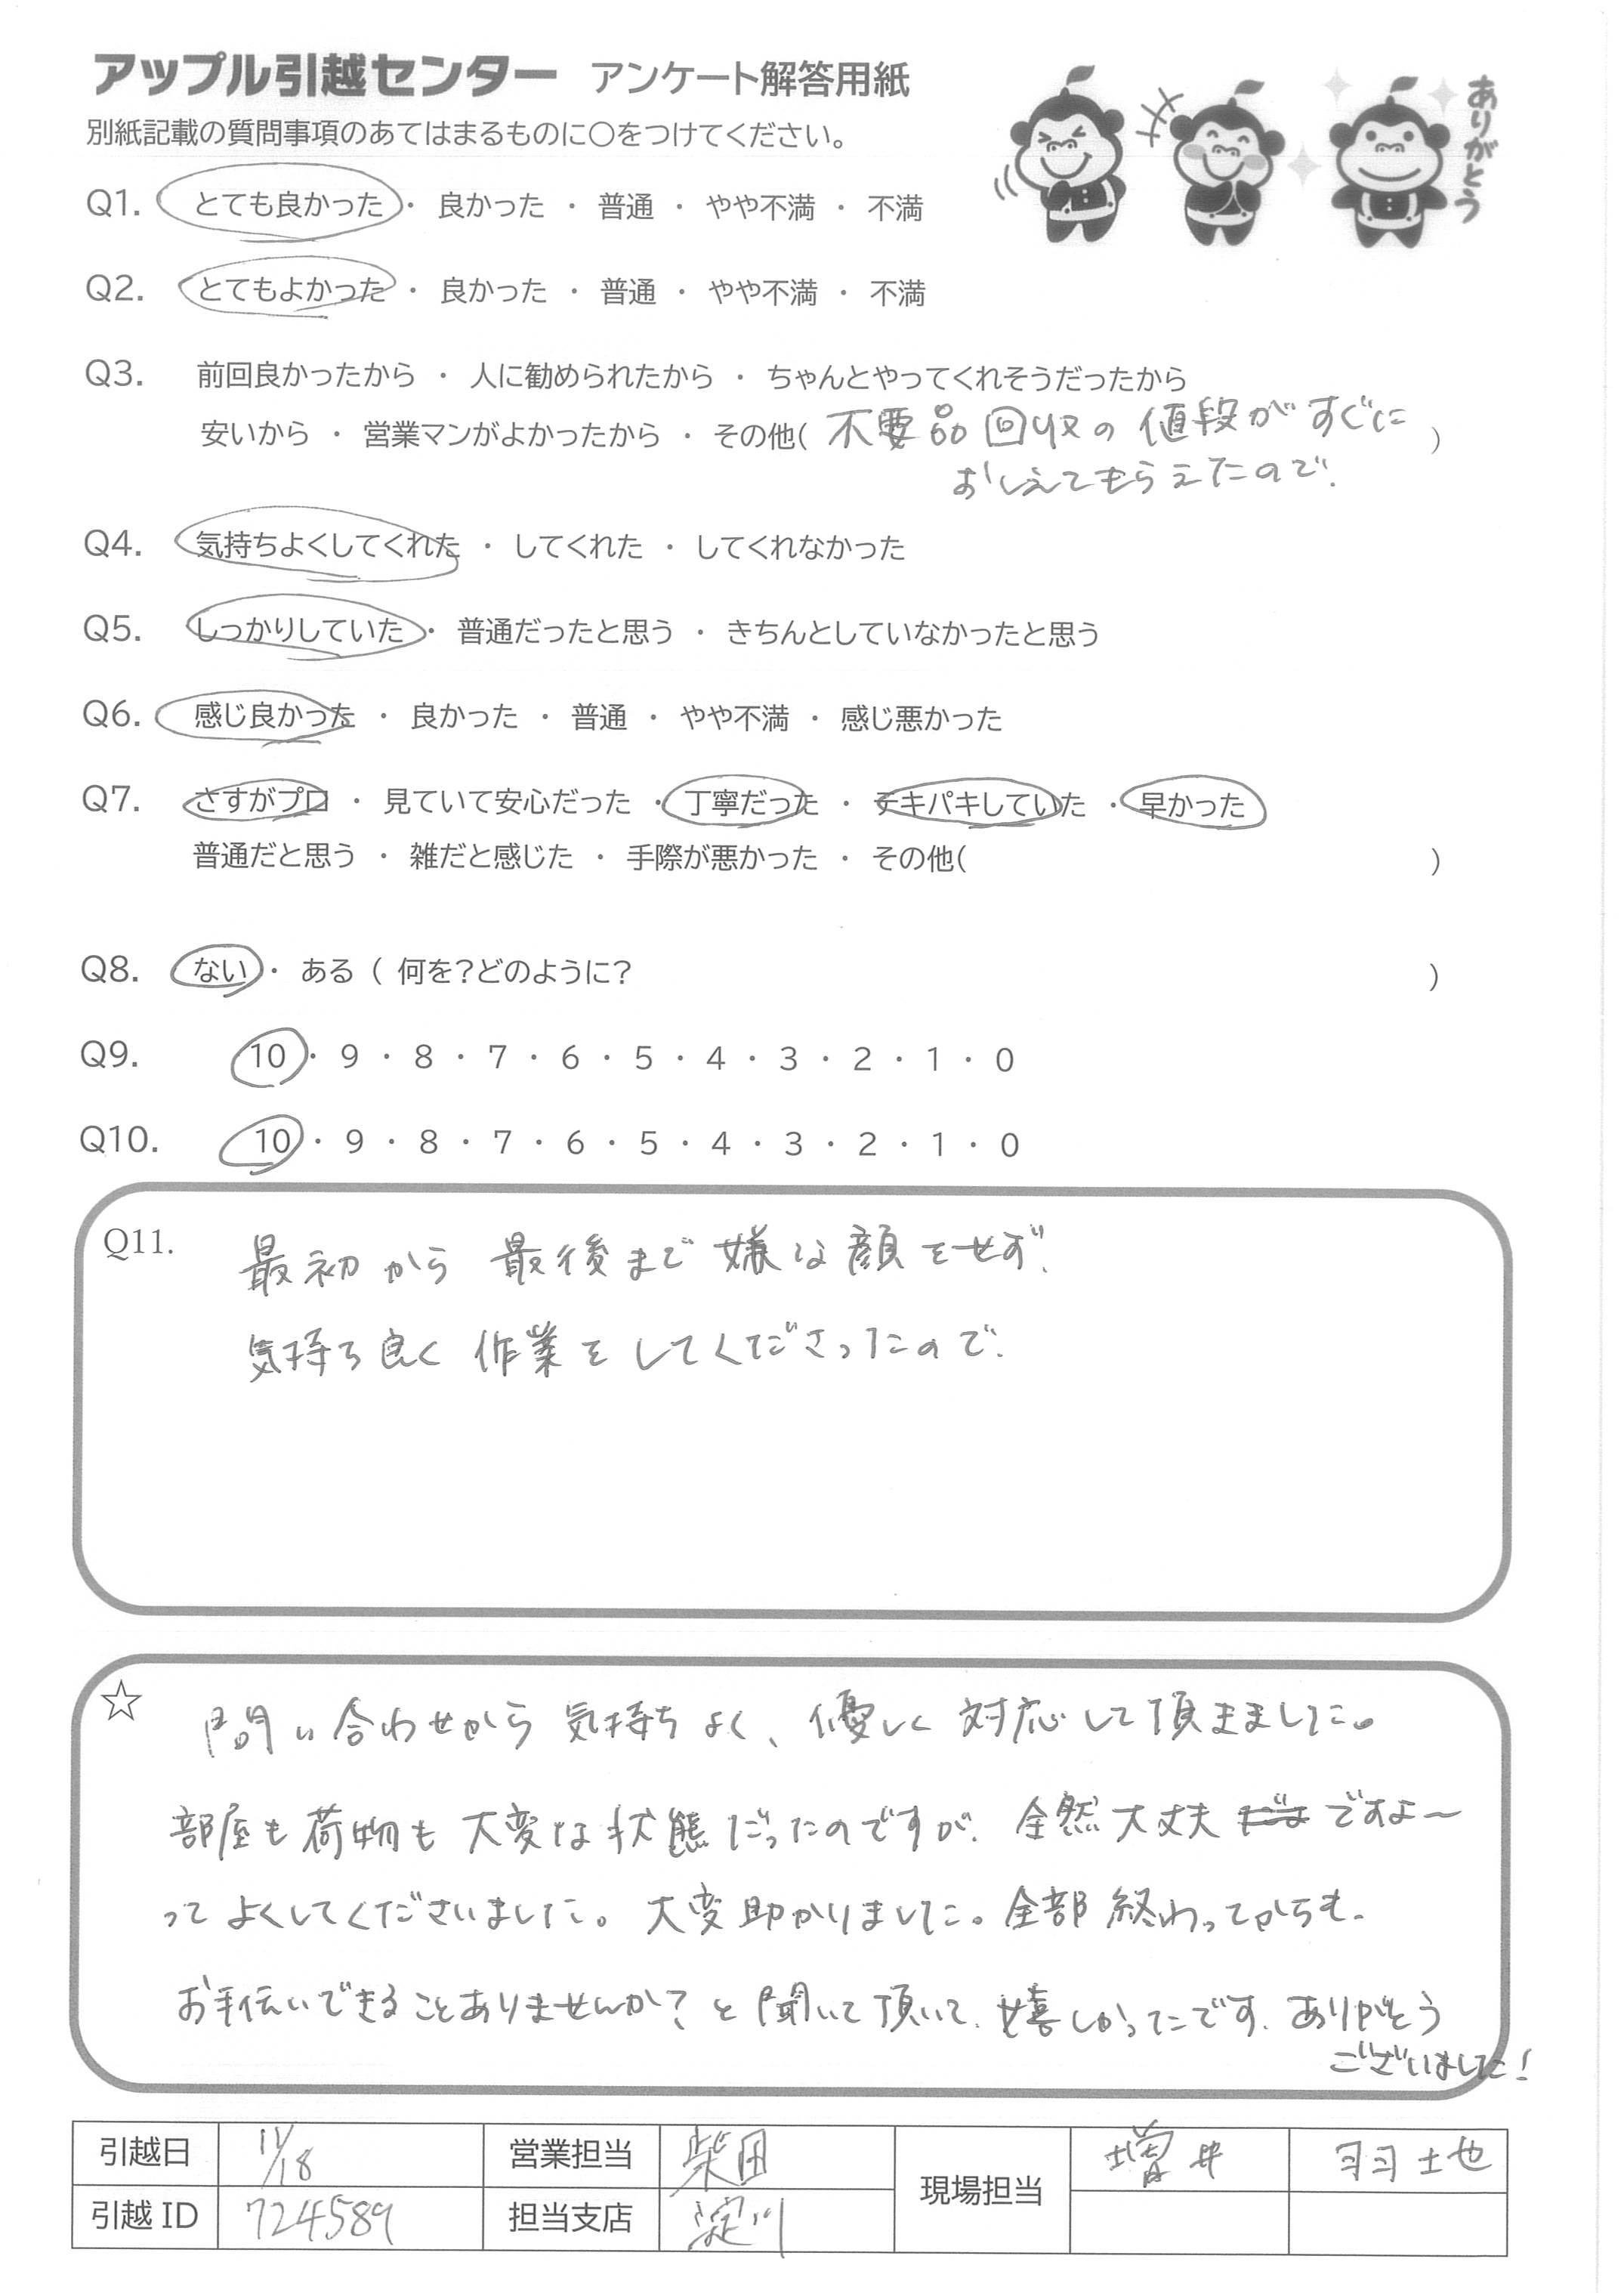 アップル引越センター アンケート解答用紙
別紙記載の質問事項のあてはまるものに○をつけてください。
ありがとう
Q1. とても良かった ・ 良かった ・ 普通 ・ やや不満 ・ 不満
Q2. とてもよかった ・ 良かった ・ 普通 ・ やや不満 ・ 不満
Q3. 前回良かったから ・ 人に勧められたから ・ ちゃんとやってくれそうだったから
安いから ・ 営業マンがよかったから ・ その他( 不要品回収の値段がすぐに )
おしえてもらえたので.
Q4. 気持ちよくしてくれた ・ してくれた ・ してくれなかった
Q5. しっかりしていた ・ 普通だったと思う ・ きちんとしていなかったと思う
Q6. 感じ良かった ・ 良かった ・ 普通 ・ やや不満 ・ 感じ悪かった
Q7. さすがプロ ・ 見ていて安心だった ・ 丁寧だった ・ テキパキしていた ・ 早かった
普通だと思う ・ 雑だと感じた ・ 手際が悪かった ・ その他( )
Q8. ない ・ ある ( 何を?どのように? )
Q9. 10 ・ 9 ・ 8 ・ 7 ・ 6 ・ 5 ・ 4 ・ 3 ・ 2 ・ 1 ・ 0
Q10. 10 ・ 9 ・ 8 ・ 7 ・ 6 ・ 5 ・ 4 ・ 3 ・ 2 ・ 1 ・ 0
Q11. 最初から 最後まで 嫌な顔をせず.
気持ち良く 作業を してくださったので.
☆ 問い合わせから 気持ちよく、優しく 対応して頂きました。
部屋も荷物も大変な状態だったのですが. 全然大丈夫 ですよ〜
ってよくしてくださいました。大変助かりました。全部 終わってからも.
お手伝いできることありませんか? と聞いて頂いて. 嬉しかったです. ありがとう
ございました!
引越日 11/18 営業担当 柴田 現場担当 増井 羽地
引越ID 724589 担当支店 淀川